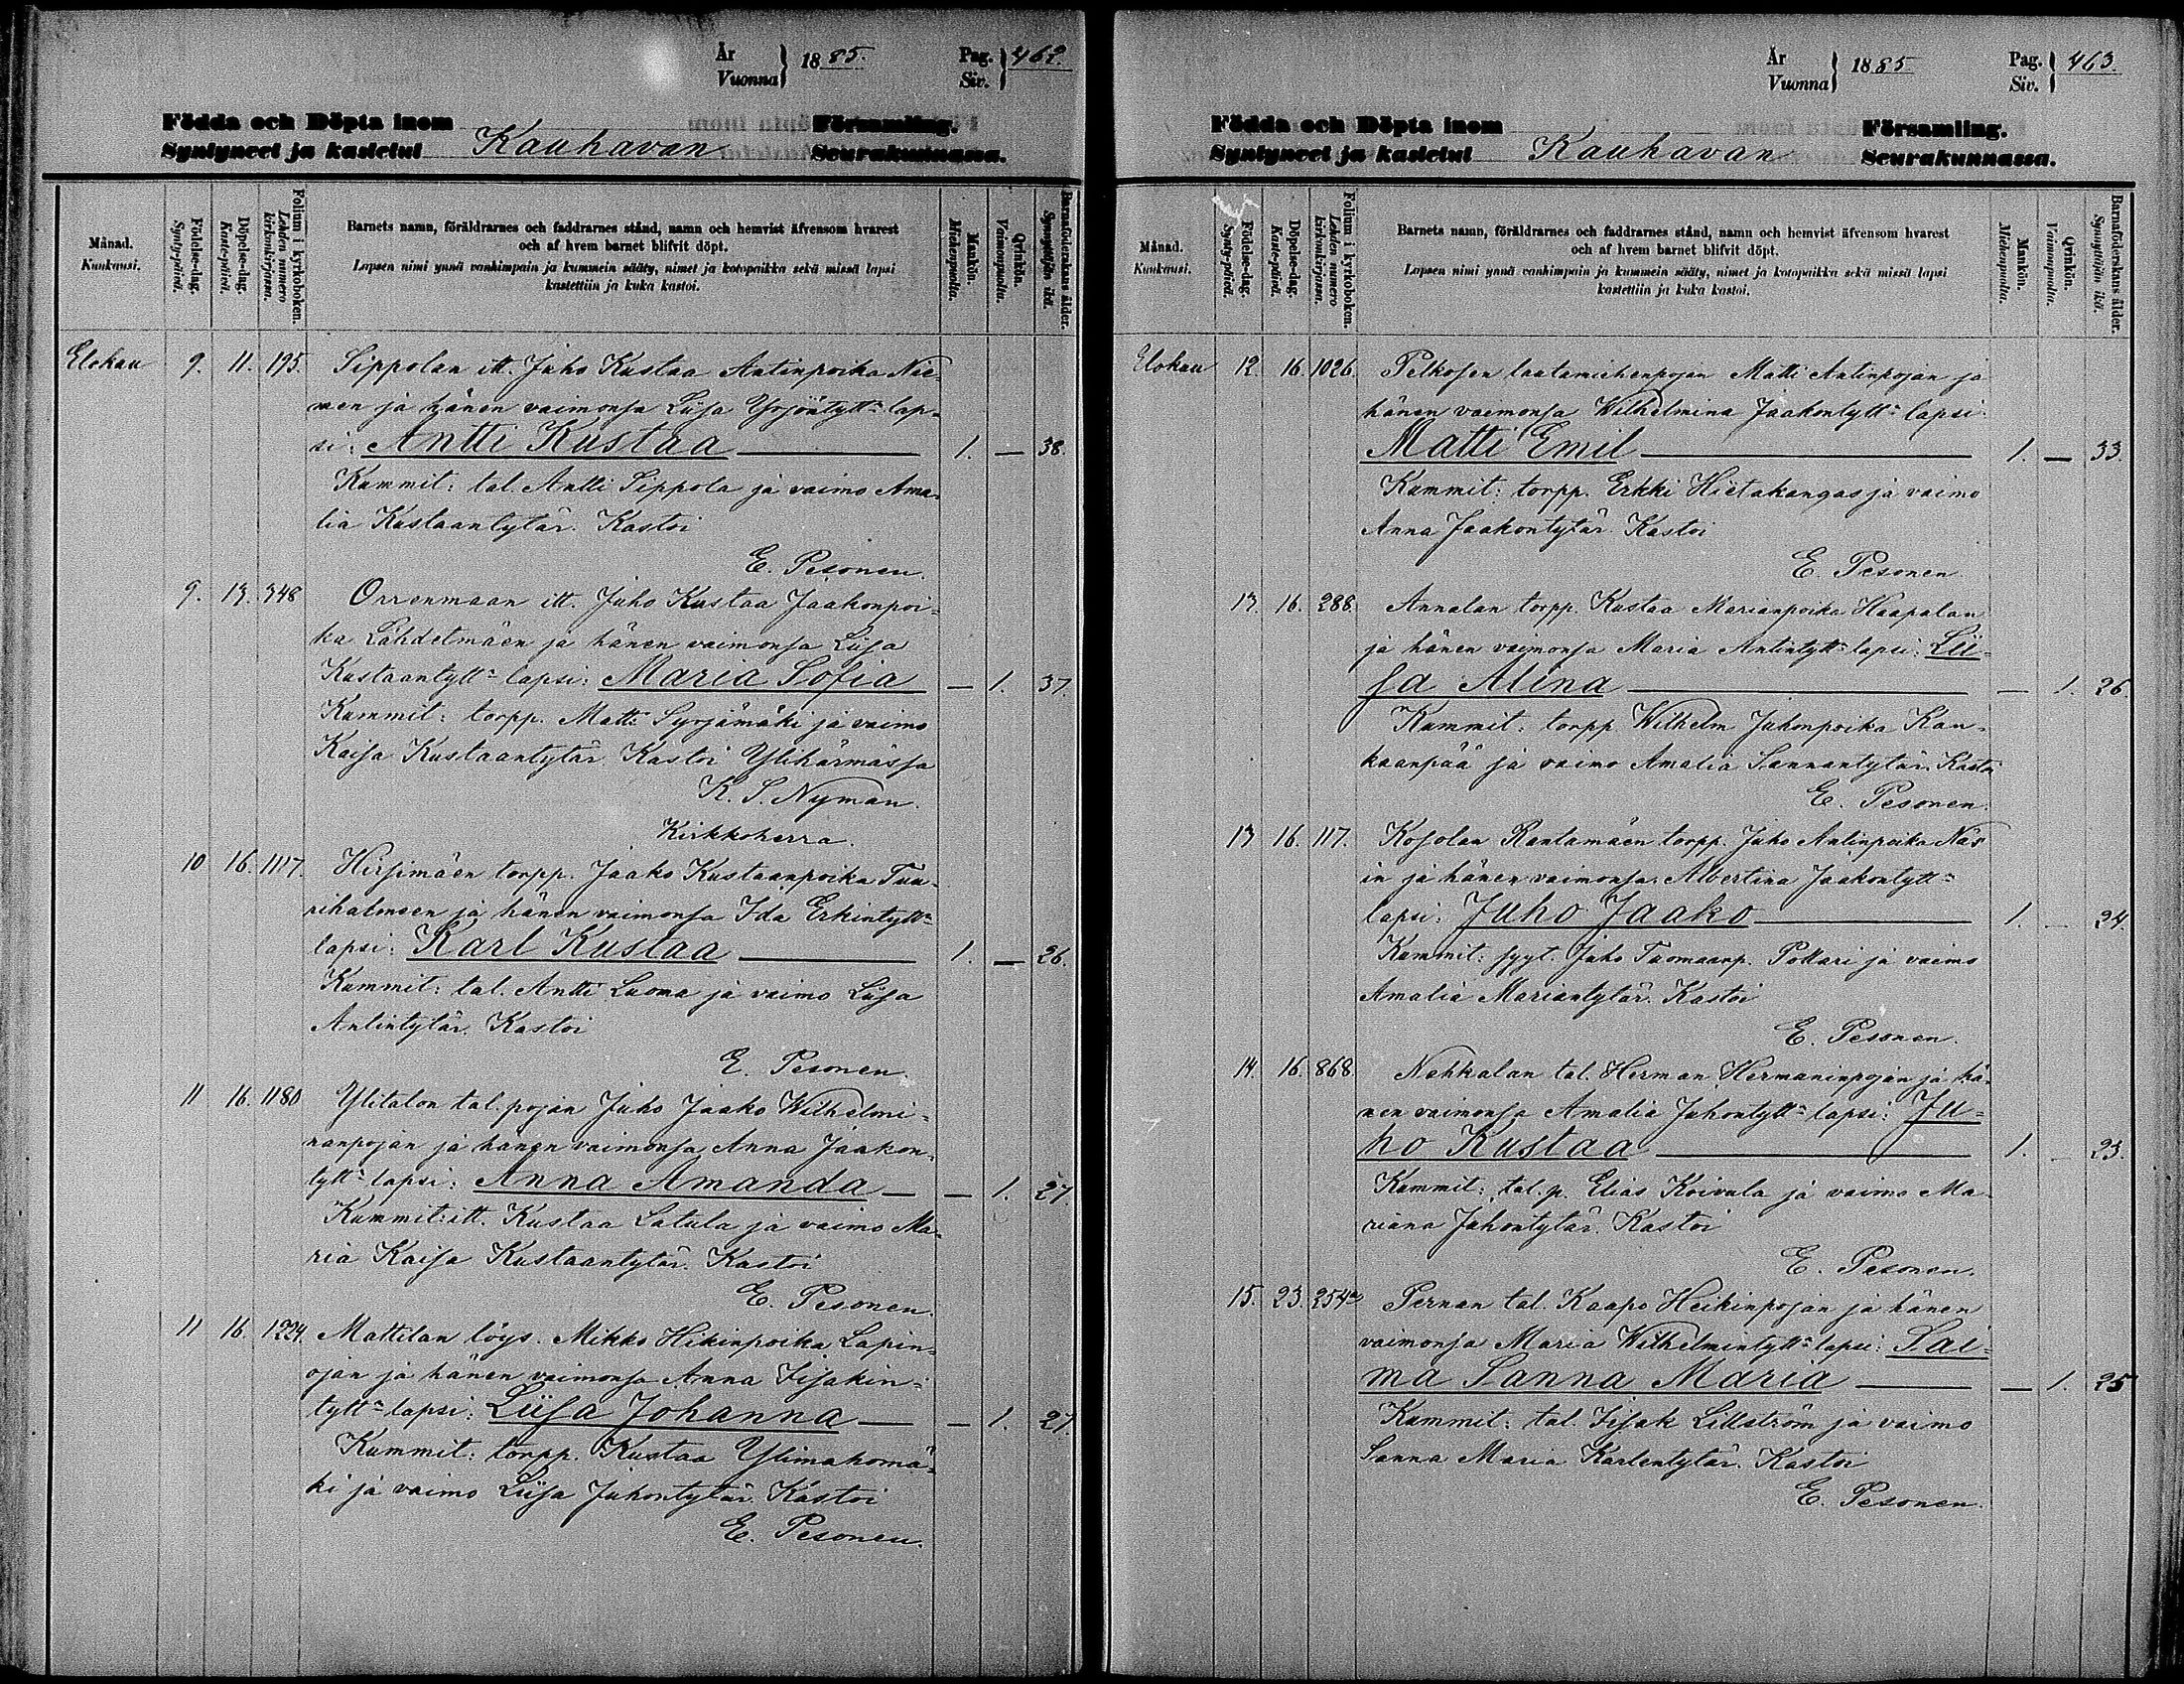 År
Vuonna } 1885. Pag.
Siv. } 462.
Födda och Döpta inom Församling.
Syntyneet ja kastetut Kauhavan Seurakunnassa.
Månad.
Kuukausi.
Födelse-dag.
Synty-päivä.
Döpelse-dag.
Kaste-päivä.
Folium i kyrkoboken.
Lehden numero
kirkonkirjassa.
Barnets namn, föräldrarnes och faddrarnes stånd, namn och hemvist äfvensom hvarest
och af hvem barnet blifvit döpt.
Lapsen nimi ynnä vanhimpain ja kummein sääty, nimet ja kotopaikka sekä missä lapsi
kastettiin ja kuka kastoi.
Mankön.
Miehenpuolta.
Qvinkön.
Vaimonpuolta.
Barnaföderskans ålder.
Synnyttäjän ikä.
Elokuu 9. 11. 195. Sippolan itt. Juho Kustaa Antinpoika Nie-
men ja hänen vaimonsa Liisa Yrjöntytt:n lap-
si: Antti Kustaa 1. — 38.
Kummit: tal. Antti Sippola ja vaimo Ama-
lia Kustaantytär. Kastoi
E. Pesonen.
9. 13. 348 Orrenmaan itt. Juho Kustaa Jaakonpoi-
ka Lähdetmäen ja hänen vaimonsa Liisa
Kustaantytt:n lapsi: Maria Sofia — 1. 37.
Kummit: torpp. Matti Syrjämäki ja vaimo
Kaisa Kustaantytär. Kastoi Ylihärmässä
K. S. Nyman.
Kirkkoherra.
10 16. 1117. Hirsimäen torpp. Jaako Kustaanpoika Tuu-
rihalmeen ja hänen vaimonsa Ida Erkintytt:n
lapsi: Karl Kustaa 1. — 26.
Kummit: tal. Antti Luoma ja vaimo Liisa
Antintytär. Kastoi
E. Pesonen.
11 16. 1180 Ylitalon tal. pojan Juho Jaako Wilhelmi-
nanpojan ja hänen vaimonsa Anna Jaakon-
tytt:n lapsi: Anna Amanda — — 1. 27
Kummit: itt. Kustaa Latula ja vaimo Ma-
ria Kaisa Kustaantytär. Kastoi
E. Pesonen.
11 16. 1224. Mattilan löys. Mikko Hikinpoika Lapin-
ojan ja hänen vaimonsa Anna Iisakin-
tytt:n lapsi: Liisa Johanna — — 1. 27.
Kummit: torpp. Kustaa Ylimahomä-
ki ja vaimo Liisa Juhontytär. Kastoi
E. Pesonen.
År
Vuonna } 1885 Pag.
Siv. } 463.
Födda och Döpta inom Församling.
Syntyneet ja kastetut Kauhavan Seurakunnassa.
Månad.
Kuukausi.
Födelse-dag.
Synty-päivä.
Döpelse-dag.
Kaste-päivä.
Folium i kyrkoboken.
Lehden numero
kirkonkirjassa.
Barnets namn, föräldrarnes och faddrarnes stånd, namn och hemvist äfvensom hvarest
och af hvem barnet blifvit döpt.
Lapsen nimi ynnä vanhimpain ja kummein sääty, nimet ja kotopaikka sekä missä lapsi
kastettiin ja kuka kastoi.
Mankön.
Miehenpuolta.
Qvinkön.
Vaimonpuolta.
Barnaföderskans ålder.
Synnyttäjän ikä.
Elokuu 12. 16. 1026. Pelkosen lautamiehenpojan Matti Antinpojan ja
hänen vaimonsa Wilhelmina Jaakontytt:n lapsi
Matti Emil 1. — 33.
Kummit: torpp. Erkki Hietakangas ja vaimo
Anna Jaakontytär. Kastoi
E. Pesonen.
13. 16. 288. Annalan torpp. Kustaa Marianpoika Haapalan
ja hänen vaimonsa Maria Antintytt:n lapsi: Lii-
sa Alina — 1. 26.
Kummit: torpp. Wilhelm Juhonpoika Kan-
kaanpää ja vaimo Amalia Sannantytär. Kastoi
E. Pesonen.
13 16. 117. Kosolan Rantamäen torpp. Juho Antinpoika Näs
in ja hänen vaimonsa Albertina Jaakontytt:n
lapsi: Juho Jaako 1. — 24.
Kummit: syyt. Juho Tuomaanp. Pollari ja vaimo
Amalia Mariantytär. Kastoi
E. Pesonen.
14. 16. 868. Nahkalan tal. Herman Hermaninpojan ja hä-
nen vaimonsa Amalia Juhontytt:n lapsi: Ju-
ho Kustaa 1. — 23.
Kummit: tal. p. Elias Koivula ja vaimo Ma-
riana Juhontytär. Kastoi
E. Pesonen.
15. 23. 254 Pernan tal. Kaapo Heikinpojan ja hänen
vaimonsa Maria Wilhelmintytt:n lapsi: Sai-
ma Sanna Maria — — 1. 25
Kummit: tal. Iisak Lillström ja vaimo
Sanna Maria Karlentytär. Kastoi
E. Pesonen.